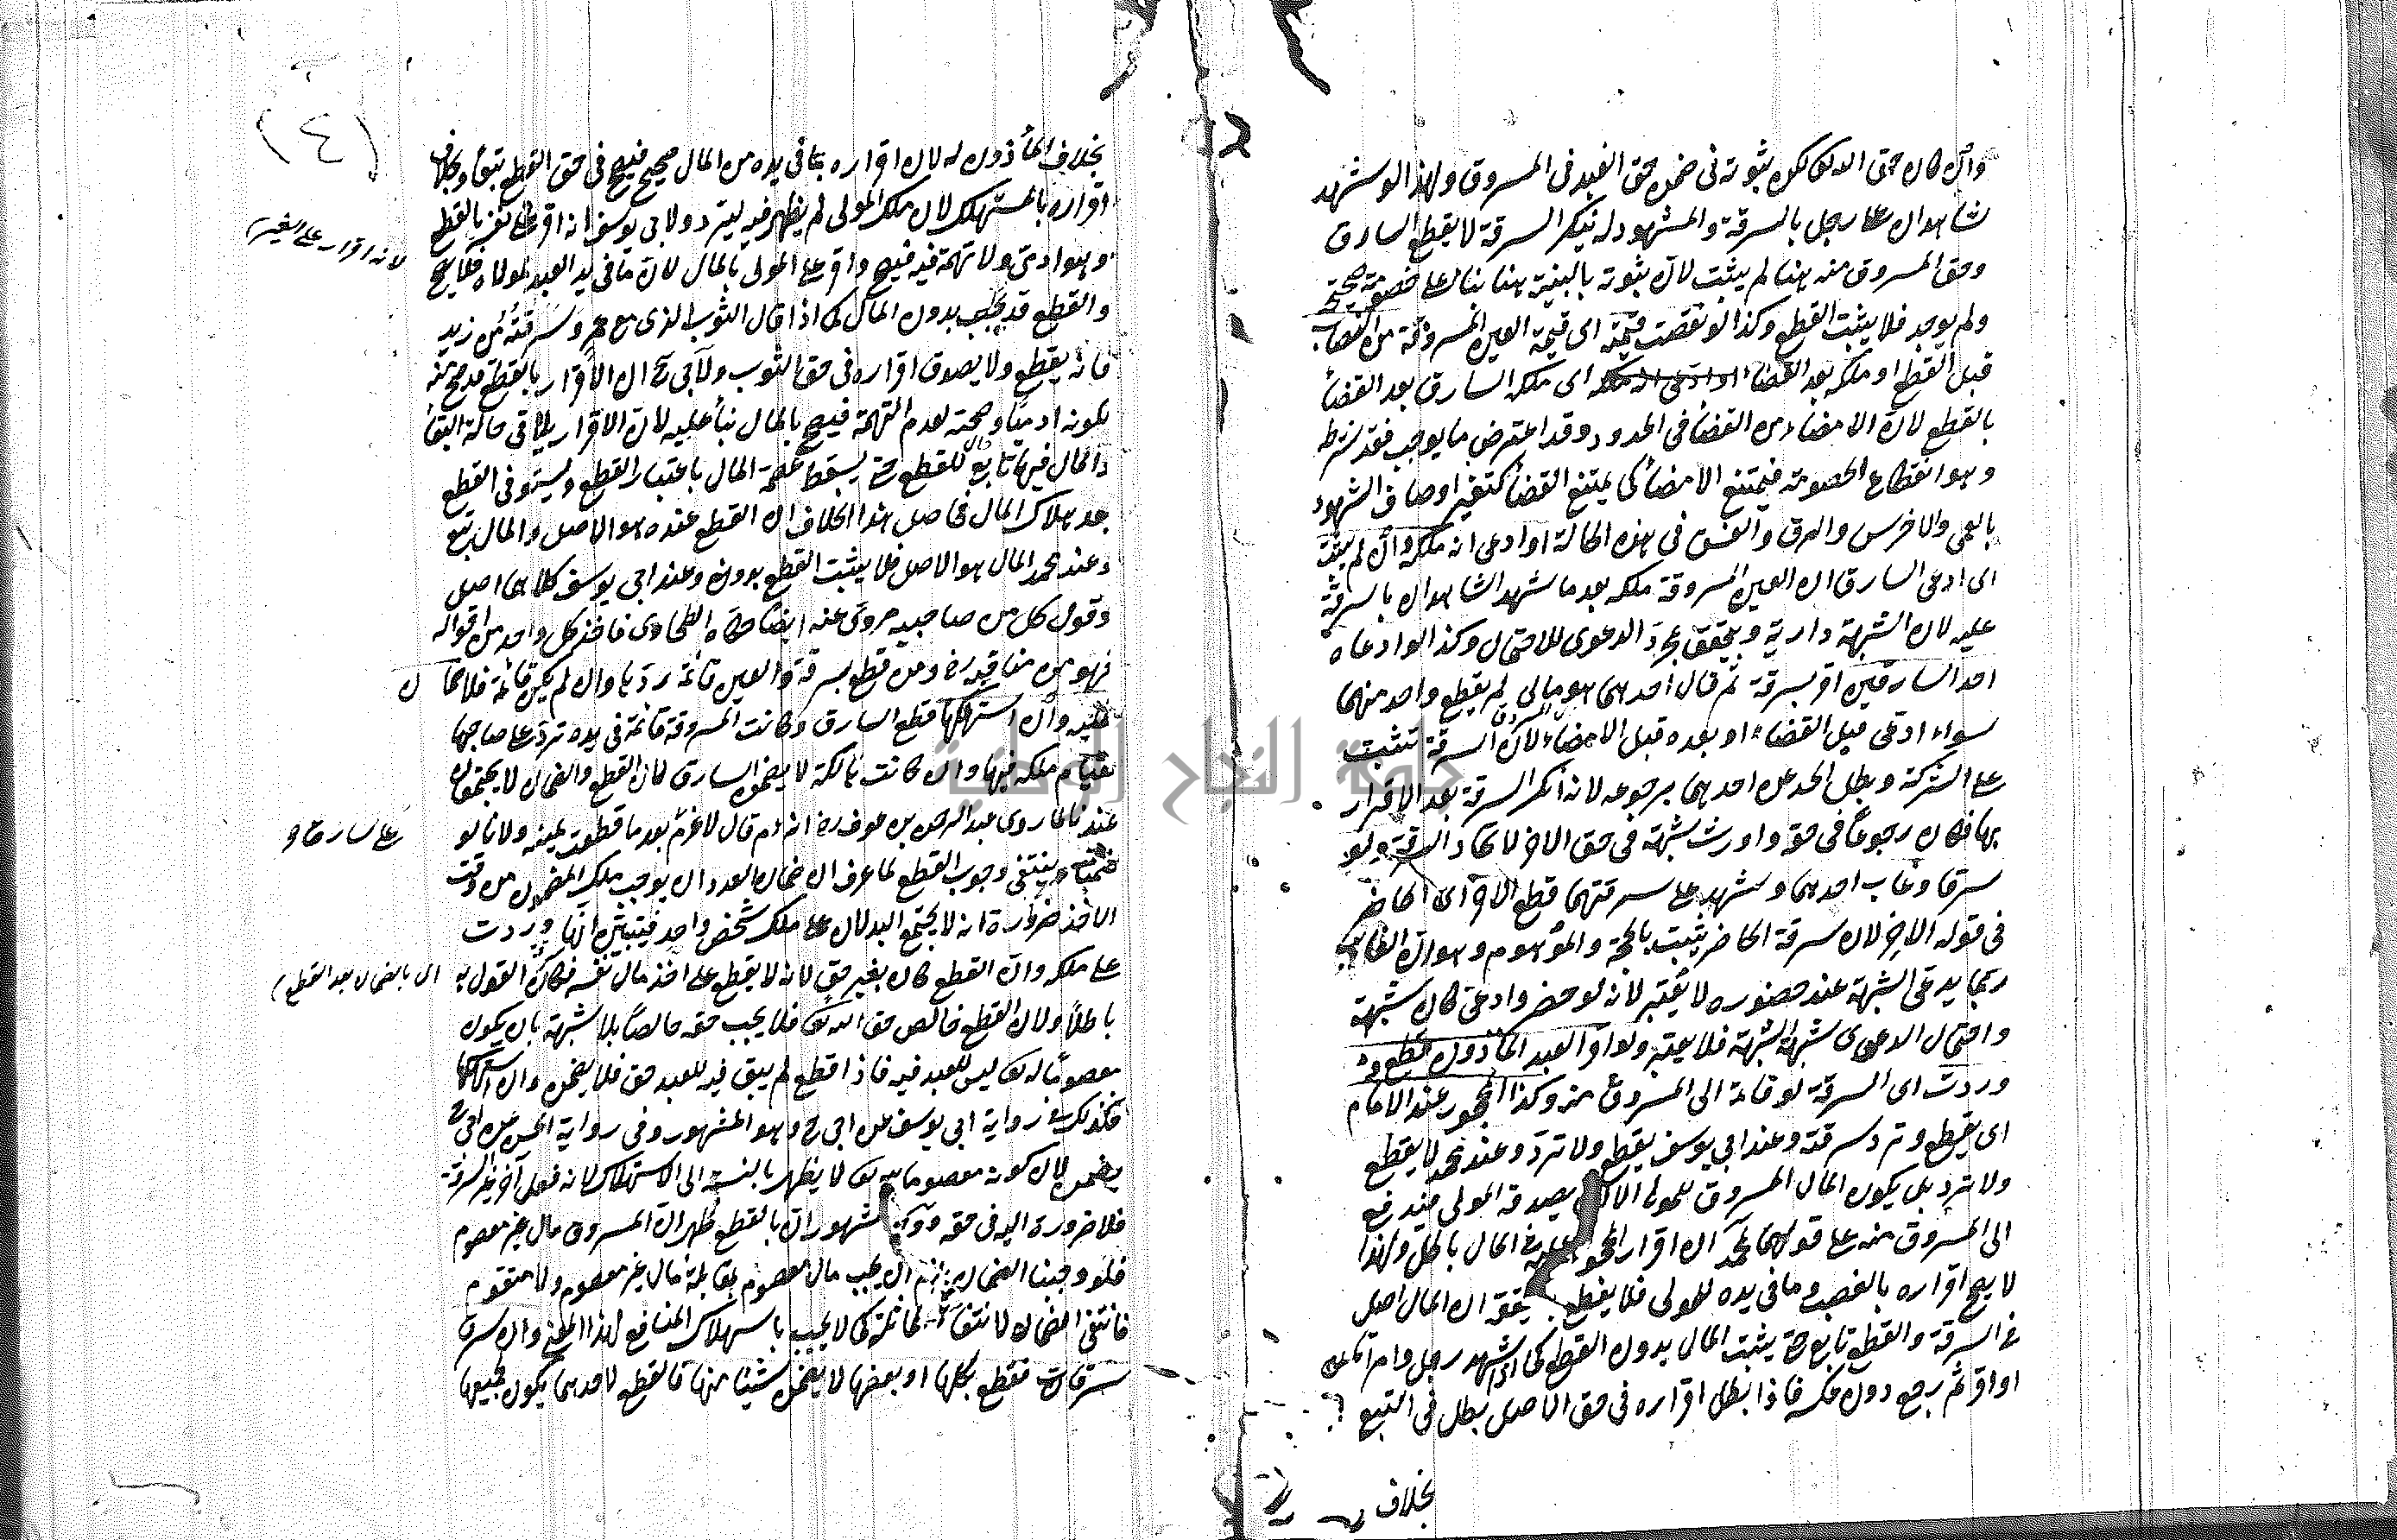 وان كان حق الله تع لكن ثبوته فى ضمن حق العبد فى المسروق ولهذا لو شهد
شاهدان على رجل بالسرقة والمشهود له ينكر السرقة لا يقطع السارق
وحق المسروق منه هنا لم يثبت لان ثبوته بالبينة هنا بناء على خصومة صحيحة
ولم يوجد فلا يثبت القطع وكذا لو نقصت قيمته اى قيمة العين المسروقة من النصاب
قبل القطع او ملكه بعد القضاء اى ملكه السارق بعد القضاء
بالقطع لان الامضاء من القضاء فى الحدود وقد اعترض ما يوجب فقد شرط
وهو انقطاع الخصومة فيمتنع الامضاء كما يمتنع القضاء كتغير اوصاف الشهود
بالعمى والاخرس والرق والفسق فى هذه الحالة او ادعى انه ملكه وان لم يثبت
اى ادعى السارق ان العين المسروقة ملكه بعد ما شهد الشاهدان بالسرقة
عليه لان الشبهة دارية ويتحقق بمجرد الدعوى للاحتمال وكذا لو ادعاه
احد السارقين اقر بسرقة ثم قال احدهما هو مالى لم يقطع واحد منهما
سواء ادعى قبل القضاء او بعده قبل الامضاء لان السرقة تثبت
على الشركة وبطل الحد عن احدهما برجوعه لانه انكر السرقة بعد الاقرار
بها فكان رجوعًا فى حقه واورث شبهة فى حق الاخر لاتحاد السرقة ولو
سرقا وغاب احدهما وشهد على سرقتهما قطع الاخر اى الحاضر
فى قوله الاخر لان سرقة الحاضر يثبت بالحجة والموهوم وهو ان الغائب
ربما يدعى الشبهة عند حضوره لا يعتبر لانه لو حضر وادعى كان شبهة
واحتمال الدعوى شبهة الشبهة فلا يعتبر ولو اقر العبد المأذون قطع
وردت اى السرقة لو قائمة الى المسروق منه وكذا المحجور عند الامام
اى يقطع وترد سرقته وعند ابى يوسف يقطع ولا ترد وعند محمد لا يقطع
ولا ترد بل يكون المال المسروق للمولى الا ان يصدقه المولى فيدفع
الى المسروق منه على قولهما لمحمد ان اقرار المحجور عليه فى المال باطل ولهذا
لا يصح اقراره بالغصب وما فى يده للمولى فلا يقطع يحققه ان المال اصل
فى السرقة والقطع تابع حتى يثبت المال بدون القطع كما اذا شهد رجل وامرأتان
او اقر ثم رجع دون عكسه فاذا بطل اقراره فى حق الاصل بطل فى التبع
بخلاف
(٤)
بخلاف المأذون له لان اقراره بما فى يده من المال صحيح فيصح فى حق القطع تبعًا وبخلاف
اقراره بالمستهلك لان ملك المولى لم يظهر فيه ليترد ولابى يوسف انه اقر على نفسه بالقطع
وهو ادمى ولا تهمة فيه فيصح واقر على المولى بالمال لان ما فى يد العبد لمولاه فلا يصح
لانه اقرار على الغير
والقطع قد يجب بدون المال كما اذا قال الثوب الذى مع عمرو سرقته من زيد
فانه يقطع ولا يصدق اقراره فى حق الثوب ولابى ح ان الاقرار بالقطع قد صح منه
لكونه ادميًا وصحته لعدم التهمة فيصح بالمال بناء عليه لان الاقرار يلاقى حالة البقاء
والمال فيها تابع للقطع حتى يسقط عصمة المال باعتبار القطع ويستوفى القطع
بعد هلاك المال فحاصل هذا الخلاف ان القطع عنده هو الاصل والمال تبع
وعند محمد المال هو الاصل فلا يثبت القطع بدونه وعند ابى يوسف كلاهما اصل
وقول كل من صاحبيه مروى عنه ايضا حكاه الطحاوى فاخذ كل واحد من اقواله
فهو من مناقبه ومن قطع بسرقة والعين قائمة ردها وان لم يكن قائمة فلا ضمان
عليه وان استهلكها قطع السارق وكانت المسروقة قائمة فى يده ترد على صاحبها
لقيام ملكه فيها وان كانت هالكة لا يضمن السارق لان القطع والضمان لا يجتمعان
عندنا لما روى عبد الرحمن بن عوف رض انه عم قال لا غرم بعد ما قطعت يمينه ولانا لو
على سارق
ضمناه ينتفى وجوب القطع لما عرف ان ضمان العدوان يوجب ملك المضمون من وقت
الاخذ ضرورة انه لا يجتمع البدلان على ملك شخص واحد فيتبين انها وردت
على ملكه وان القطع كان بغير حق لانه لا يقطع على اخذ مال نفسه فكان القول به
اى بالضمان بعد القطع
باطلًا ولان القطع خالص حق الله تع فلا يجب حقه خالصًا بلا شبهة بان يكون
معصومًا له تع ليس للعبد فيه فاذا قطع لم يبق فيه للعبد حق فلا يضمن وان استهلكها
فكذلك فى رواية ابى يوسف عن ابى ح وهو المشهور وفى رواية الحسن عن ابى ح
يضمن لان كونه معصوما لله تع لا يظهر بالنسبة الى الاستهلاك لانه فعل آخر غير السرقة
فلا ضرورة اليه فى حقه المشهور ان بالقطع ظهر ان المسروق مال غير معصوم
فلو وجبنا الضمان يلزم ان يجب مال معصوم بمقابلة مال غير معصوم ولا متقوم
فانتفى الضمان لانتفاء المماثلة كما لا يجب باستهلاك المنافع لهذا المعنى وان سرق
سرقات فقطع بكلها او بعضها لا يضمن شيئا منها فالقطع لاحدهما يكون لجميعها
جامعة النجاح الوطنية